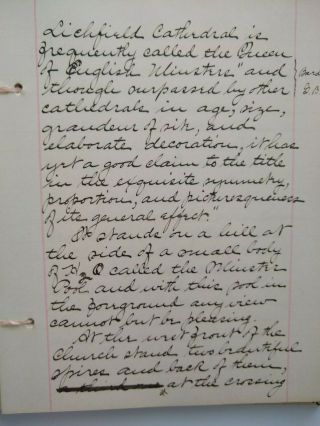 Lichfield Cathedral is
frequently called the "Queen
of English Minsters" and
"though surpassed by other
cathedrals in age, size,
grandeur of site, and
elaborate decoration, it has
yet a good claim to the title
in the exquisite symmetry,
proportion, and picturesqueness
of its general effect."
It stands on a hill at
the side of a small body
of H2O called the Minster
Pool and with this pool in
the foreground any view
cannot but be pleasing.
At the west front of the
Church stand two beautiful
spires and back of them,
at the crossing